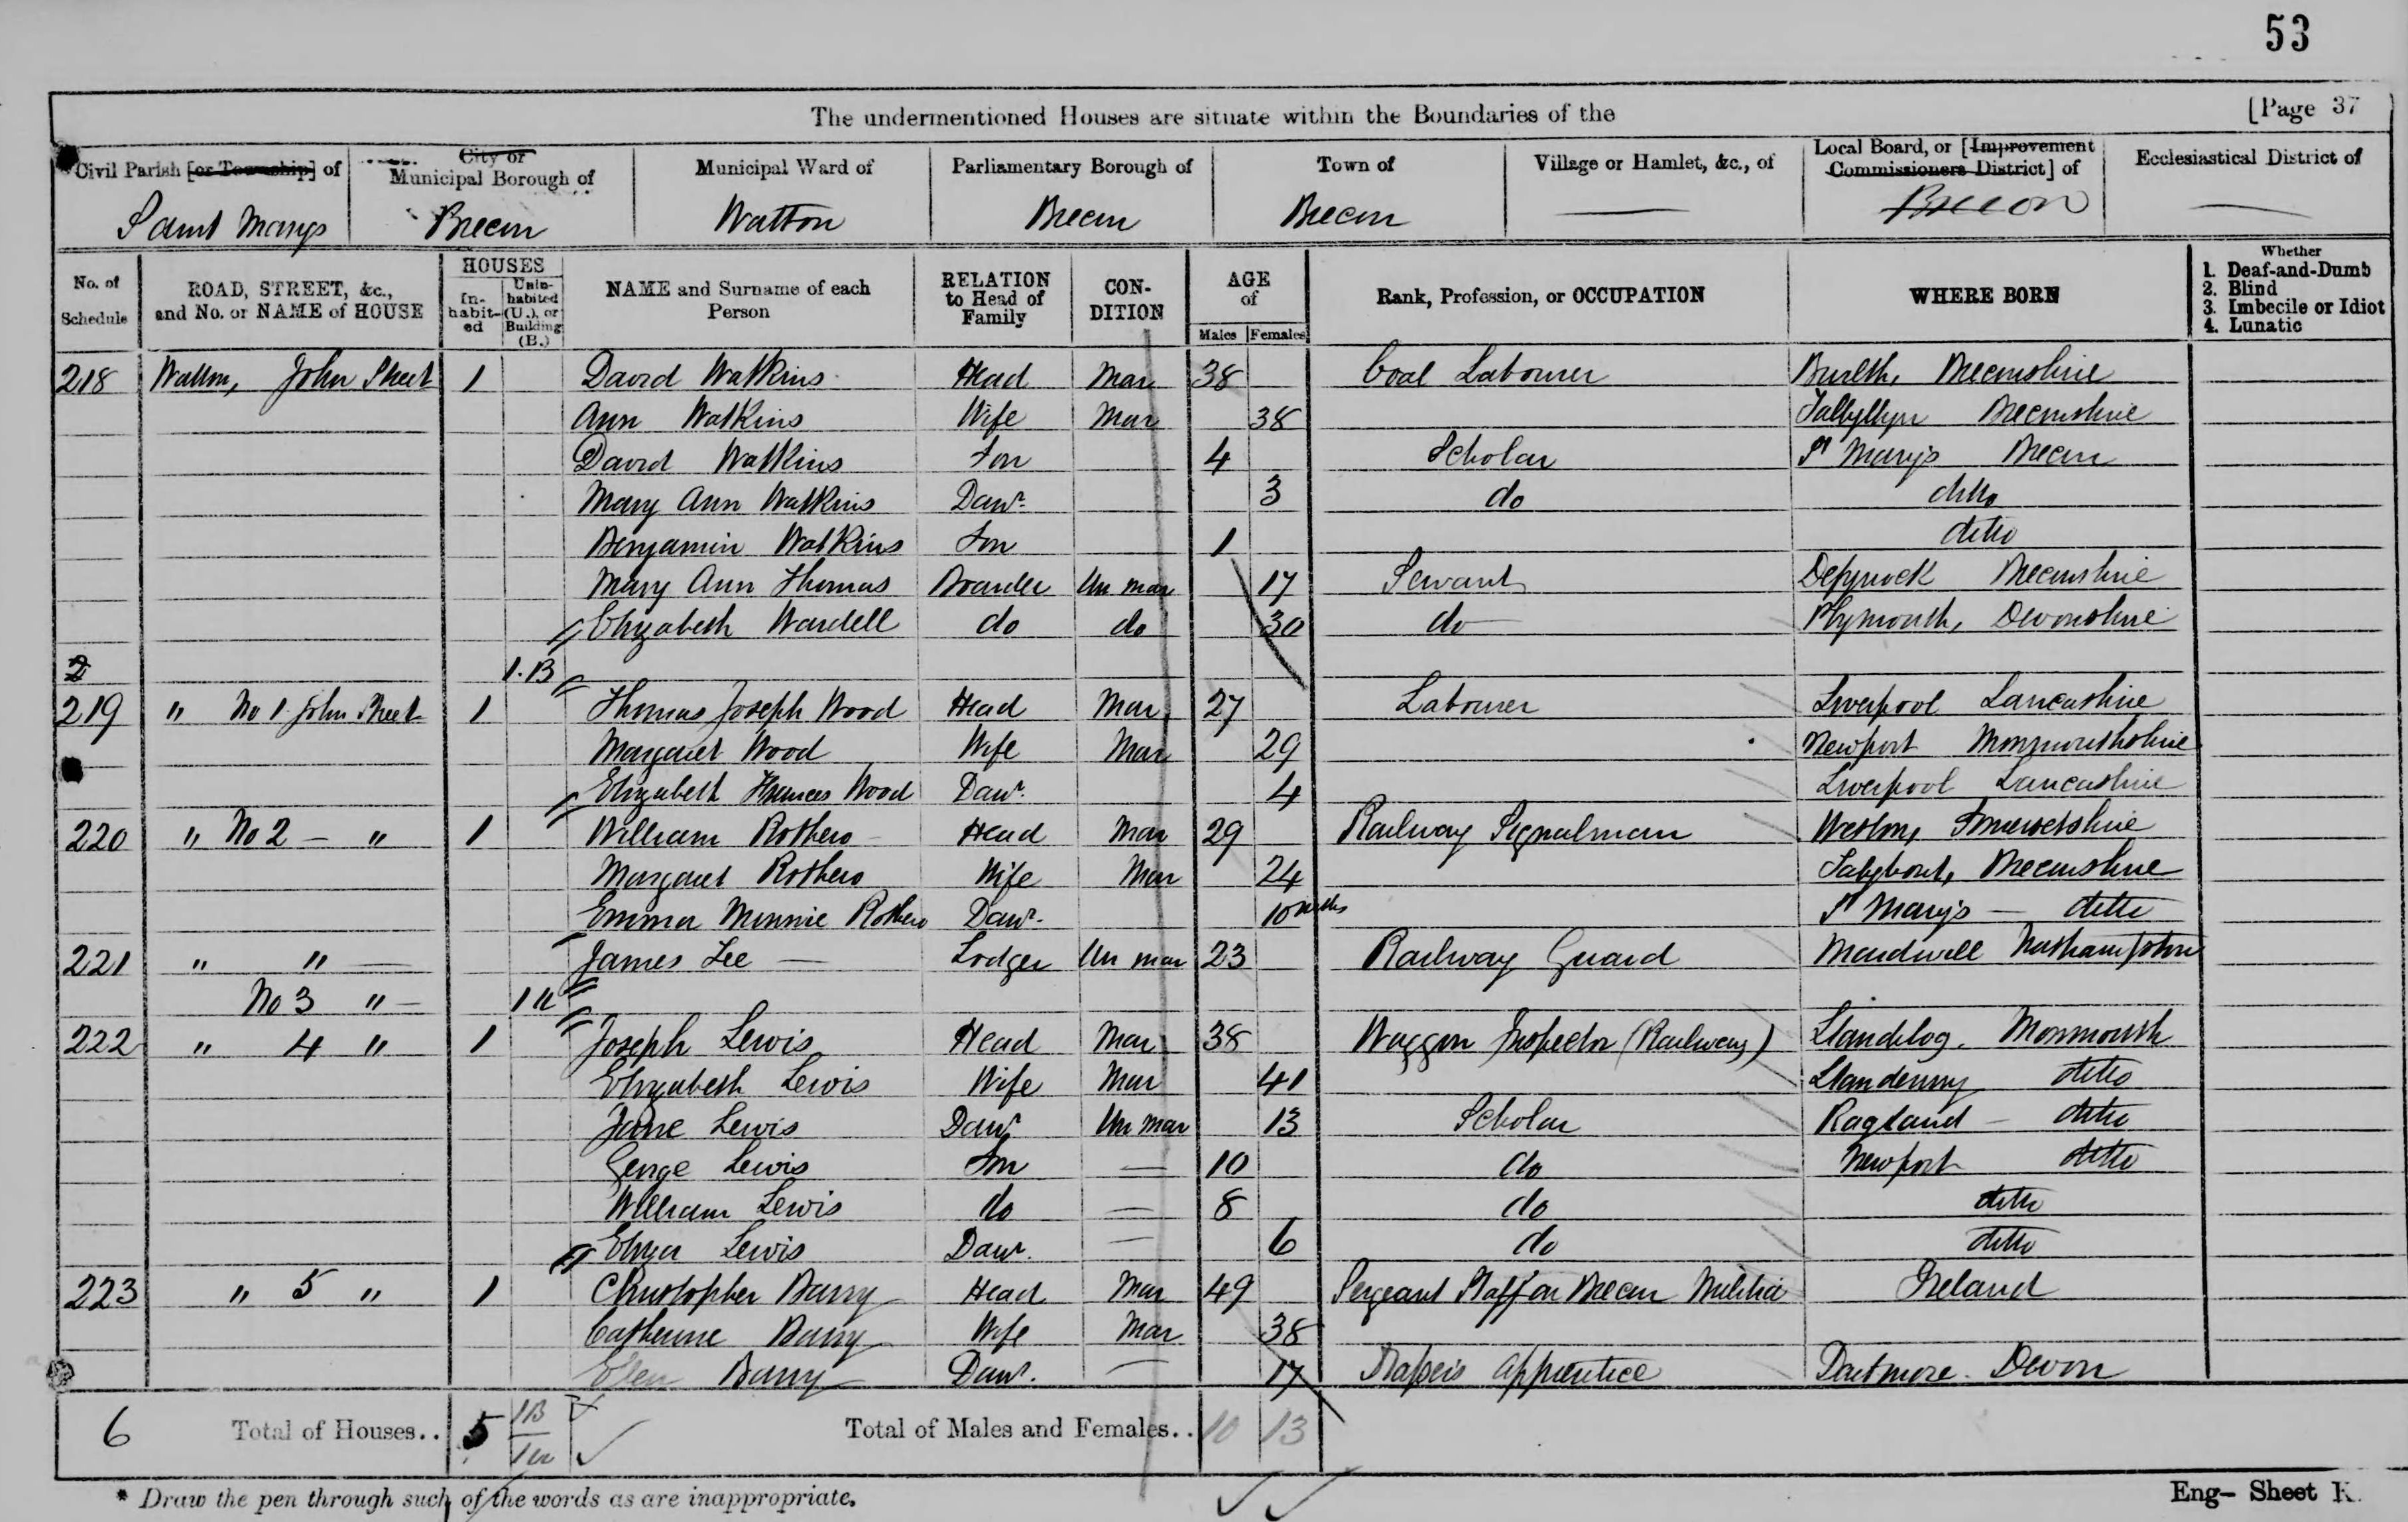 53
The undermentioned Houses are situate within the Boundaries of the [Page 37
Civil Parish [or Township] of City or Municipal Borough of Municipal Ward of Parliamentary Borough of Town of Village or Hamlet, &c., of Local Board, or [Improvement Commissioners District] of Ecclesiastical District of
Saint Marys Brecon Watton Brecon Brecon — Brecon —
No. of Schedule ROAD, STREET, &c., and No. or NAME of HOUSE HOUSES In-habit-ed Unin-habited (U.), or Building (B.) NAME and Surname of each Person RELATION to Head of Family CON-DITION AGE of Males Females Rank, Profession, or OCCUPATION WHERE BORN Whether 1. Deaf-and-Dumb 2. Blind 3. Imbecile or Idiot 4. Lunatic
218 Watton, John Street 1 David Watkins Head Mar 38 Coal Labourer Builth, Breconshire
Ann Watkins Wife Mar 38 Tallyllyn Breconshire
David Watkins Son 4 Scholar St Mary's Brecon
Mary Ann Watkins Dawr. 3 do ditto
Benjamin Watkins Son 1 ditto
Mary Ann Thomas Boarder Un mar 17 Servant Defynock Breconshire
Elizabeth Wardell do do 30 do Plymouth, Devonshire
2 1.B
219 " No 1 John Street 1 Thomas Joseph Wood Head Mar 27 Labourer Liverpool Lancashire
Margaret Wood Wife Mar 29 Newport Monmouthshire
Elizabeth Frances Wood Dawr. 4 Liverpool Lancashire
220 " No 2 — " 1 William Rothero Head Mar 29 Railway Signalman Weston, Somersetshire
Margaret Rothero Wife Mar 24 Talybont, Breconshire
Emma Minnie Rothero Dawr. 10 mths St Mary's — ditto
221 " " — James Lee — Lodger Un mar 23 Railway Guard Maidwell Northampton
No 3 " — 1 U
222 " 4 " 1 Joseph Lewis Head Mar 38 Waggon Inspector (Railway) Llandilog. Monmouth
Elizabeth Lewis Wife Mar 41 Llandenny ditto
Jane Lewis Dawr Un mar 13 Scholar Ragland — ditto
George Lewis Son — 10 do Newport ditto
William Lewis do — 8 do ditto
Eliza Lewis Dawr. — 6 do ditto
223 " 5 " 1 Christopher Barry Head Mar 49 Sergeant Staff on Brecon Militia Ireland
Catherine Barry Wife Mar 38
Ellen Barry Dawr. — 17 Draper's apprentice Dartmore. Devon
6 Total of Houses.. 5 1B 1U Total of Males and Females.. 10 13
* Draw the pen through such of the words as are inappropriate.
Eng– Sheet K.